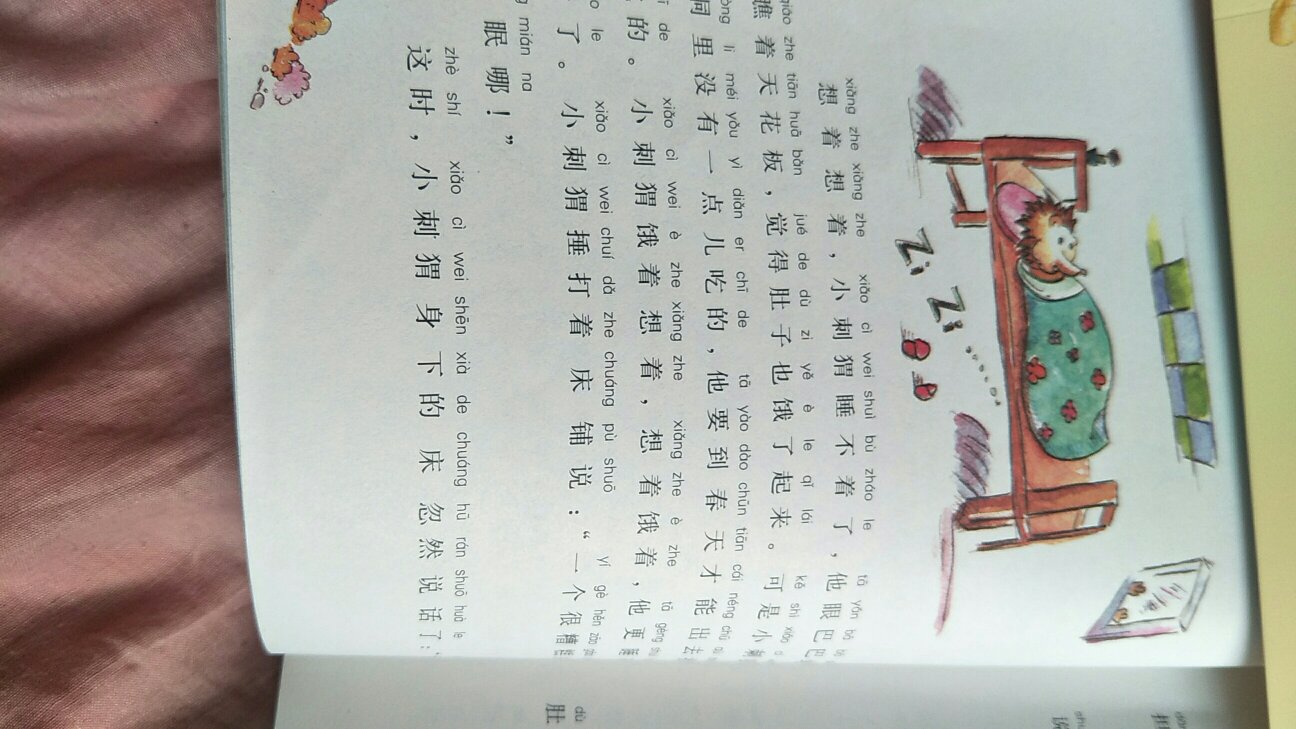 Zi Zi
xiǎng zhe xiǎng zhe xiǎo cì wei shuì bù zháo le tā yǎn bā
想着想着，小刺猬睡不着了，他眼巴巴
qiáo zhe tiān huā bǎn jué de dù zi yě è le qǐ lái kě shì xiǎo
瞧着天花板，觉得肚子也饿了起来。可是小刺
dòng li méi yǒu yì diǎn er chī de tā yào dào chūn tiān cái néng chū
洞里没有一点儿吃的，他要到春天才能出去
de xiǎo cì wei è zhe xiǎng zhe xiǎng zhe è zhe tā gèng
的。小刺猬饿着想着，想着饿着，他更
le xiǎo cì wei chuí dǎ zhe chuáng pù shuō yí gè hěn zāo
了。小刺猬捶打着床铺说：“一个很糟
mián na
眠哪！”
zhè shí xiǎo cì wei shēn xià de chuáng hū rán shuō huà le
这时，小刺猬身下的床忽然说话了：
dù
肚